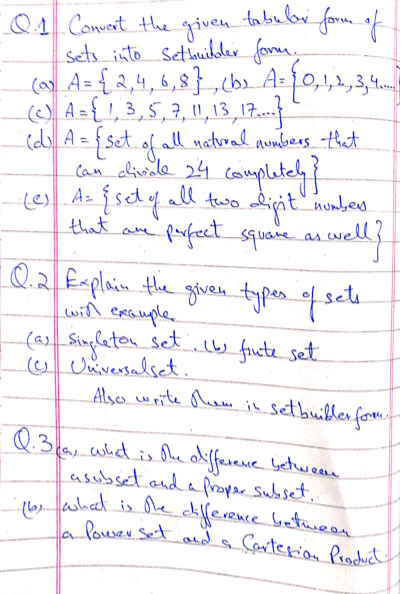 Q.1 Convert the given tabular form of
sets into Setbuilder form.
(a) A = { 2,4,6,8} , (b) A = {0,1,2,3,4.....
(c) A = { 1, 3, 5, 7, 11, 13, 17....}
(d) A = {set of all natural numbers that
can divide 24 completely}
(e) A = {set of all two digit numbers
that are perfect square as well}
Q.2 Explain the given types of sets
with example.
(a) Singleton set. (b) finite set
(c) Universalset.
Also write them in setbuilder form.
Q.3 (a) what is the difference between
a subset and a proper subset.
(b) what is the difference between
a Power set and a Cartesian Product.